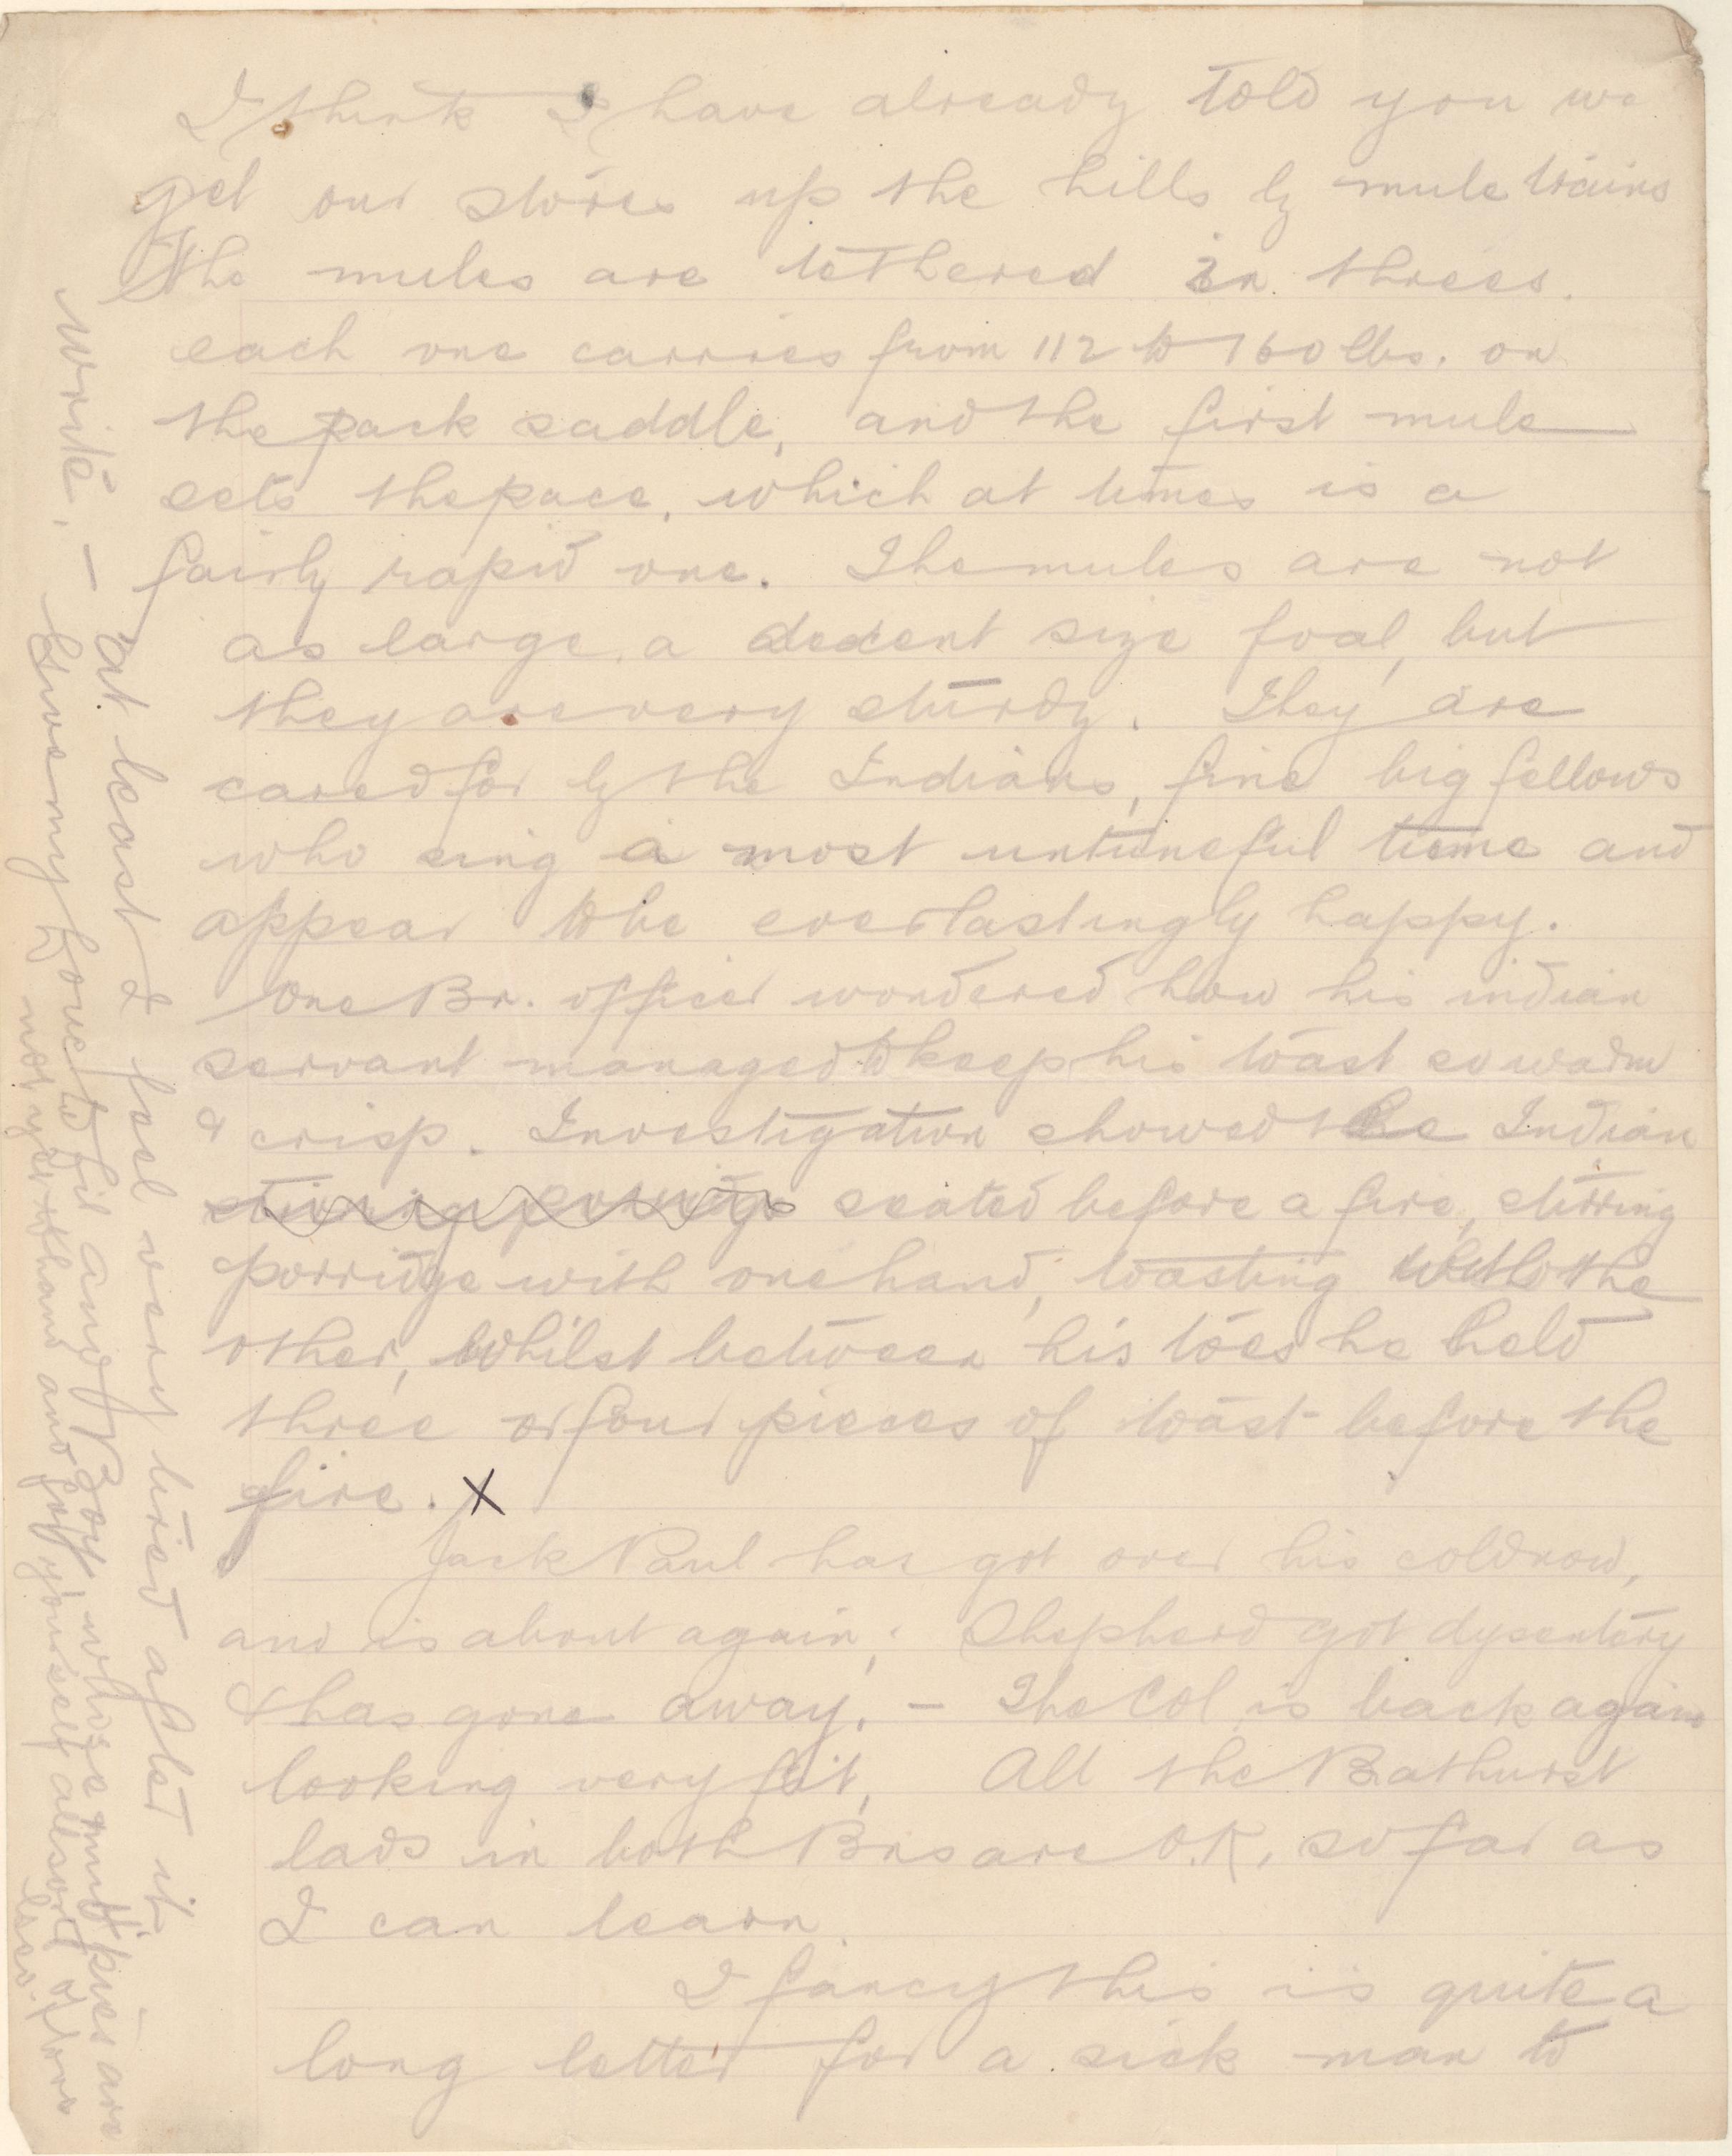 I think I have already told you we
get our stores up the hills by mule trains
The mules are tethered in threes.
each one carries from 112 to 160 lbs. on
the pack saddle, and the first mule
sets the pace, which at times is a
fairly rapid one. The mules are not
as large a decent size foal, but
they are very sturdy. They are
cared for by the Indians, fine big fellows
who sing a most untuneful tune and
appear to be everlastingly happy.
One Bn. officer wondered how his indian
servant managed to keep his toast so warm
& crisp. Investigation showed the Indian
stirring porridge seated before a fire, stirring
porridge with one hand, toasting with the
other, whilst between his toes he held
three or four pieces of toast before the
fire. X
Jack Paul has got over his cold now,
and is about again; Shepherd got dysentery
& has gone away. - The Col is back again
looking very fit, All the Bathurst
lads in both Bns are O.K, so far as
I can learn.
I fancy this is quite a
long letter for a sick man to
write. - at least I feel very tired after it.
Give my love to Fid and Boy whose muff pies are
not yet to hand and for yourself all sorts of love